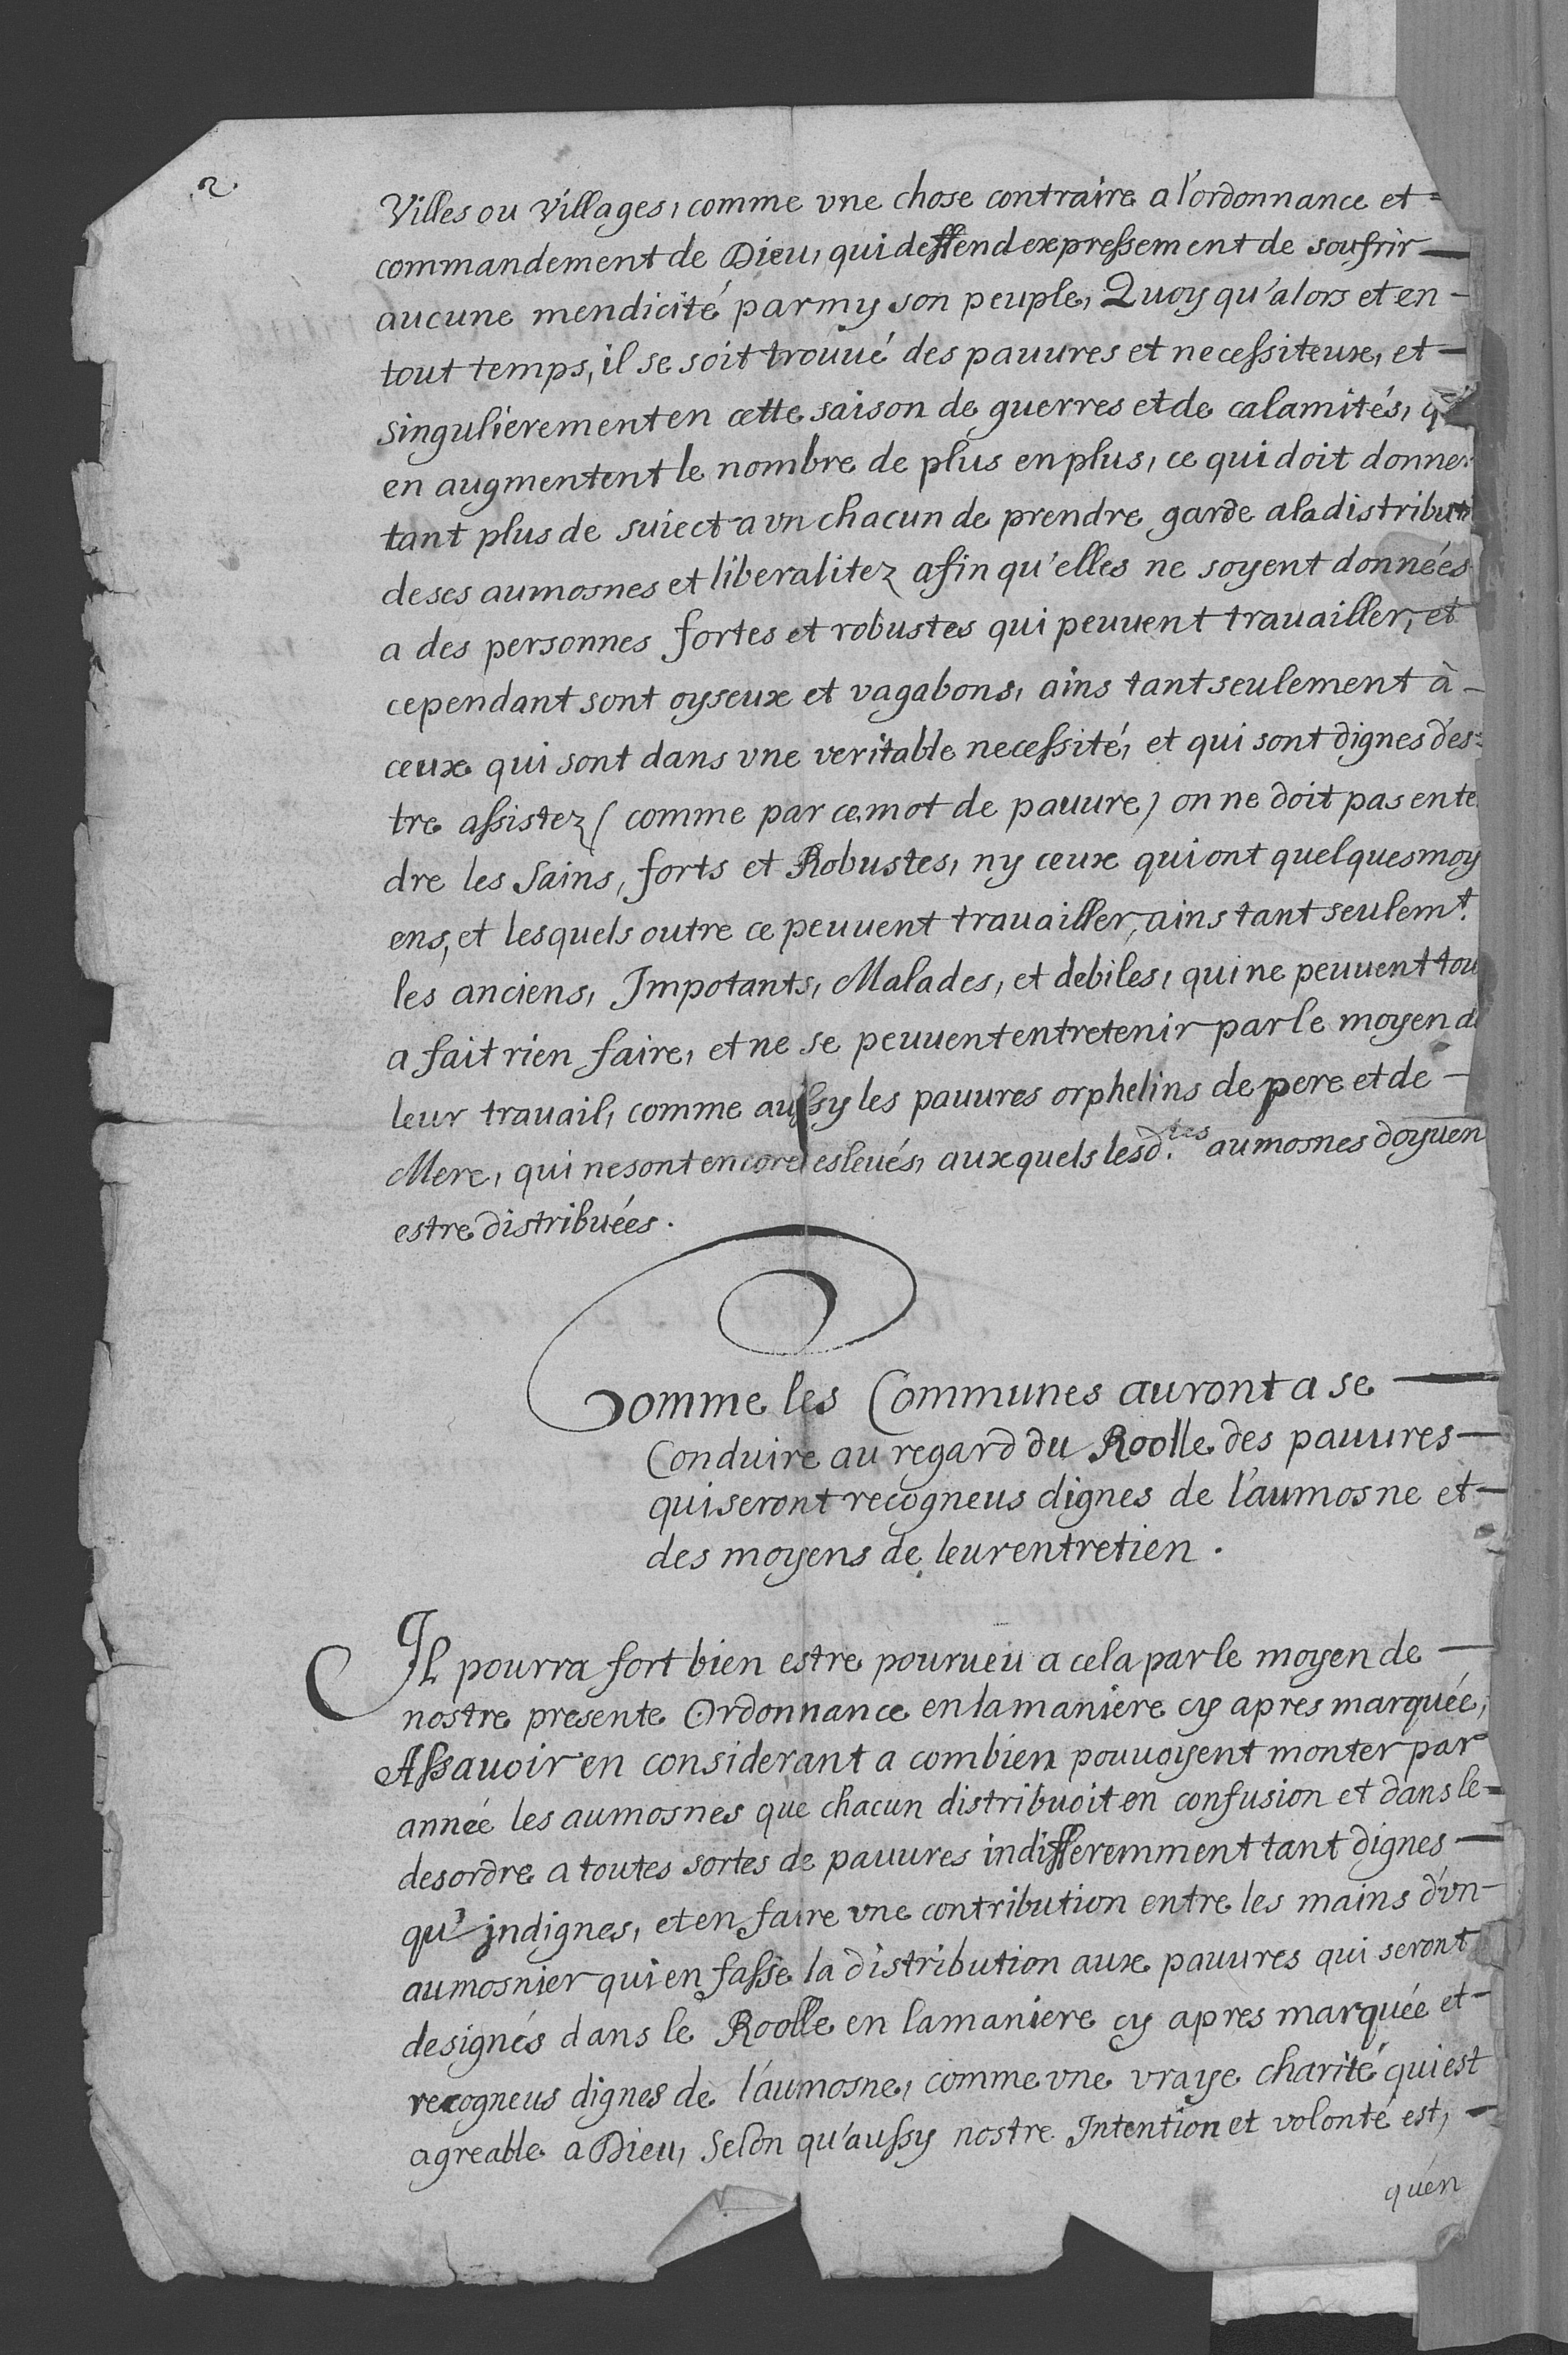 2.
Villes ou Villages, comme vne chose contraire a l'ordonnance et =
commandement de Dieu, qui deffend expressement de soufrir —
aucune mendicité parmy son peuple, Quoy qu'alors et en -
tout temps, il se soit trouué des pauures et necessiteux, et —
singulierement en cette saison de guerres et de calamités,
en augmentent le nombre de plus en plus, ce qui doit donner
tant plus de suiect a vn chacun de prendre garde a la distributi
de ses aumosnes et liberalitez afin qu'elles ne soyent données
a des personnes fortes et robustes qui peuuent trauailler, et
cependant sont oyseux et vagabons, ains tant seulement à -
ceux qui sont dans vne veritable necessité, et qui sont dignes d'es=
tre assistez (comme par ce mot de pauure) on ne doit pas ente
dre les Sains, forts et Robustes, ny ceux qui ont quelques moy
ens, et lesquels outre ce peuuent trauailler, ains tant seulemt.
les anciens, Impotants, Malades, et debiles, qui ne peuuent tou
a fait rien faire, et ne se peuuent entretenir par le moyen d
leur trauail, comme aussy les pauures orphelins de pere et de —
Mere, qui ne sont encore esleués, auxquels lesd.tes aumosnes doyuen
estre distribuées.
Comme les Communes auront a se —
Conduire au regard du Roolle des pauures —
qui seront recogneus dignes de l'aumosne et —
des moyens de leur entretien.
Il pourra fort bien estre pourueu a cela par le moyen de —
nostre presente Ordonnance en la maniere cy apres marquée,
Assauoir en considerant a combien pouuoyent monter par
année les aumosnes que chacun distribuoit en confusion et dans le =
desordre a toutes sortes de pauures indifferemment tant dignes —
qu'indignes, et en faire vne contribution entre les mains d'vn -
aumosnier qui en fasse la distribution aux pauures qui seront
designés dans le Roolle en la maniere cy apres marquée et -
recogneus dignes de l'aumosne, comme vne vraye charité qui est
agreable a Dieu, Selon qu'aussy nostre Intention et volonté est, -
qu'en